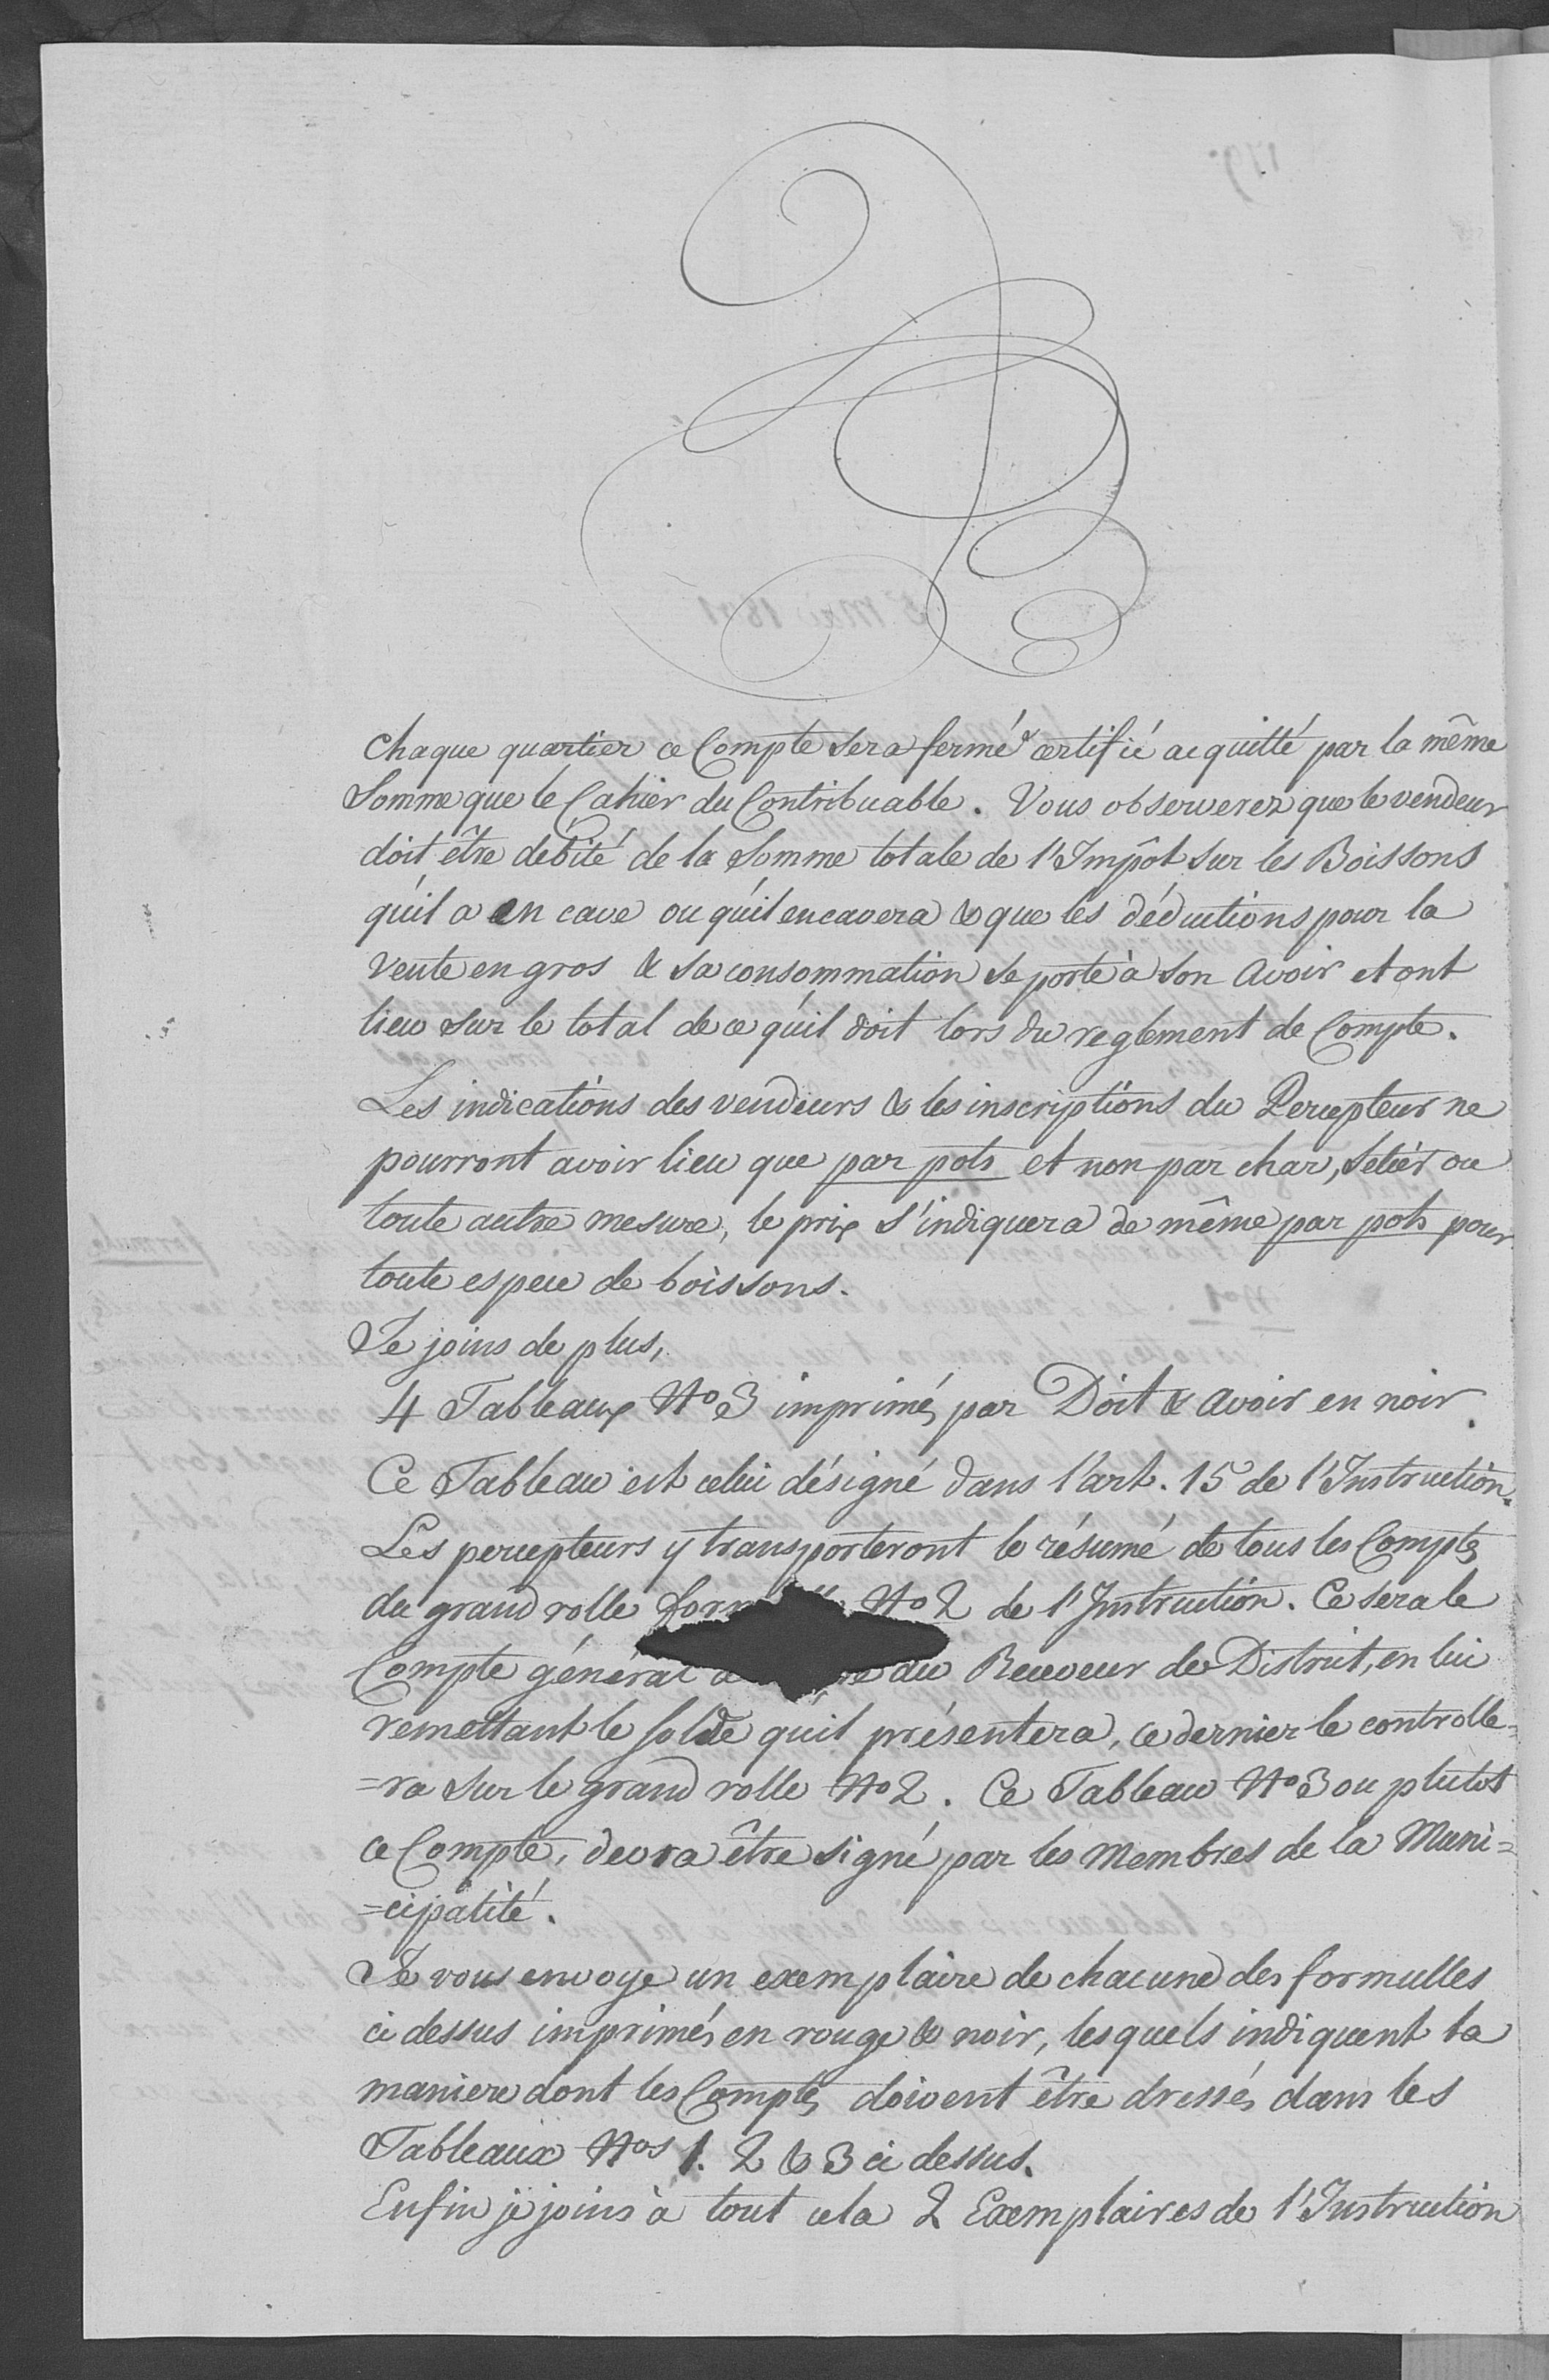 chaque quartier ce Compte sera fermé & certifié acquitté par la même
Somme que le Cahier du Contribuable. Vous observerez que le vendeur
doit être débité de la Somme totale de l'Impôt sur les Boissons
qu'il a en cave ou qu'il encavera & que les déductions pour la
Vente en gros & sa consommation se porte à son avoir et ont
lieu sur le total de ce qu'il doit lors du reglement de Compte.
Les indications des vendeurs & les inscriptions du Percepteur ne
pourront avoir lieu que par pots et non par char, setier ou
toute autre mesure, le prix s'indiquera de même par pots pour
toute espece de boissons.
Je joins de plus,
4 Tableaux No 3 imprimés par Doit & avoir en noir.
Ce Tableau est celui désigné dans l'art. 15 de l'Instruction.
Les percepteurs y transporteront le résumé de tous les Comptes
du grand rolle No 2 de l'Instruction. Ce sera le
Compte général du Receveur de District, en lui
remettant le solde qu'il présentera, ce dernier le controlle=
=ra sur le grand rolle No 2. Ce Tableau No 3 ou plutot
ce Compte, devra être signé par les Membres de la Muni=
=cipalité.
Je vous envoye un exemplaire de chacune des formulles
ci dessus imprimés en rouge & noir, lesquels indiquent la
maniere dont les Comptes doivent être dressés dans les
Tableaux Nos 1. 2 & 3 ci dessus.
Enfin je joins à tout cela 2 Exemplaires de l'Instruction